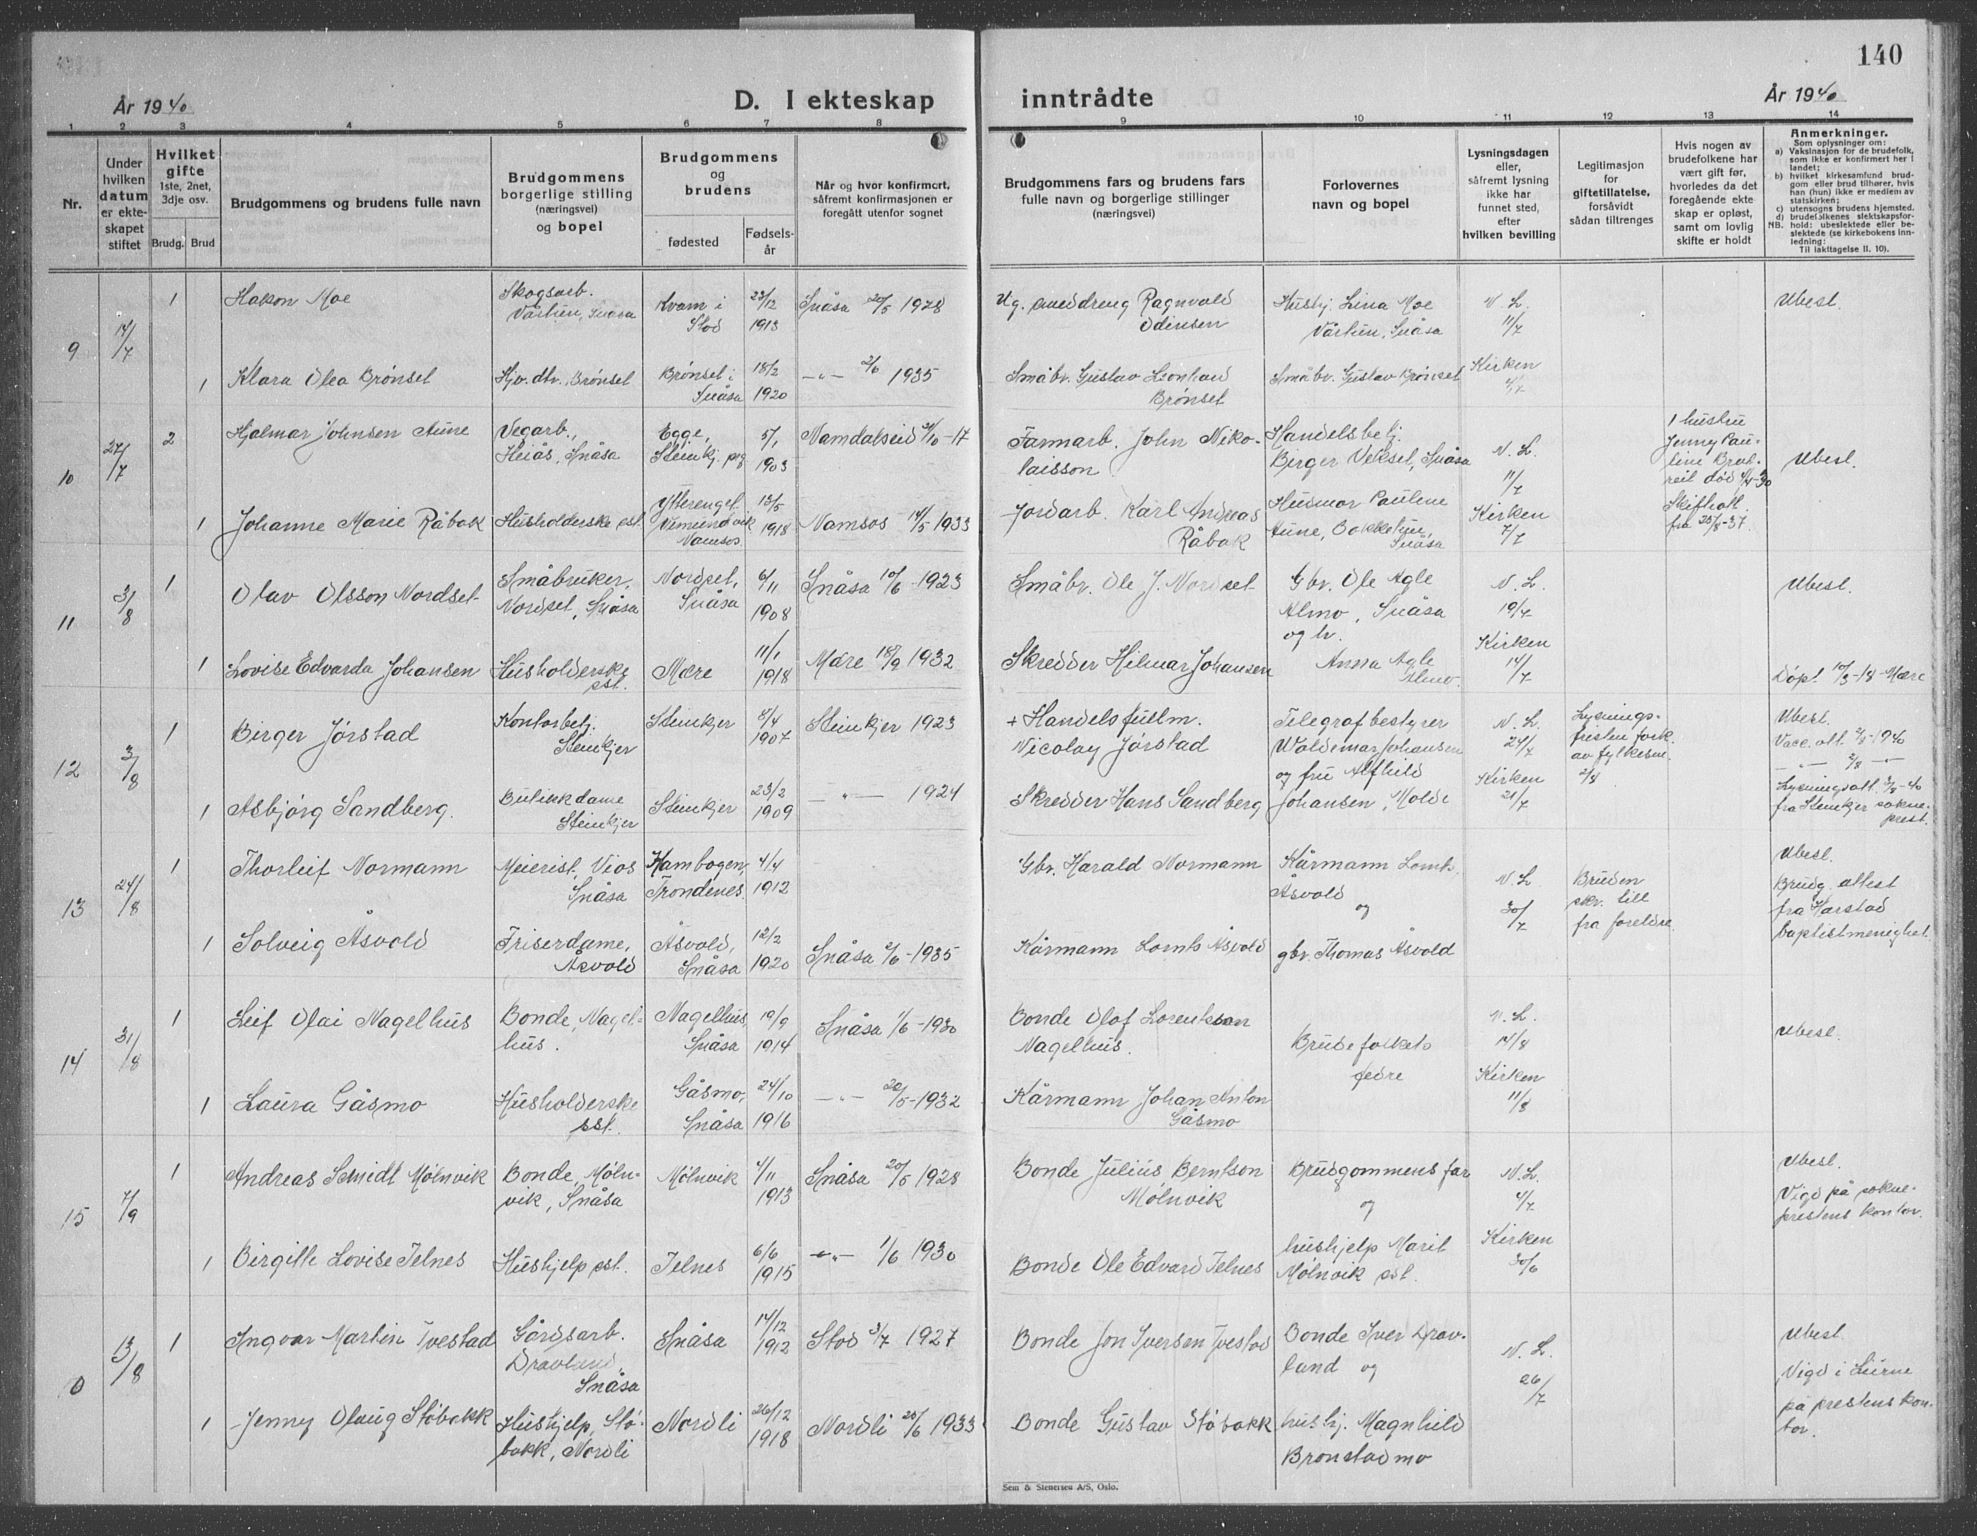 140
År 1940
D. I ekteskap inntrådte
År 1940
1 2 3 4 5 6 7 8 9 10 11 12 13 14
Nr.
Under hvilken datum er ekte-skapet stiftet
Hvilket gifte 1ste, 2net, 3dje osv.
Brudg. Brud
Brudgommens og brudens fulle navn
Brudgommens borgerlige stilling (næringsvei) og bopel
Brudgommens og brudens
fødested
Fødsels-år
Når og hvor konfirmert, såfremt konfirmasjonen er foregått utenfor sognet
Brudgommens fars og brudens fars fulle navn og borgerlige stillinger (næringsvei)
Forlovernes navn og bopel
Lysningsdagen eller, såfremt lysning ikke har funnet sted, efter hvilken bevilling
Legitimasjon for giftetillatelse, forsåvidt sådan tiltrenges
Hvis nogen av brudefolkene har vært gift før, hvorledes da det foregående ekte skap er opløst, samt om lovlig skifte er holdt
Anmerkninger.
Som oplysninger om:
a) Vaksinasjon for de brudefolk, som ikke er konfirmert her i landet;
b) hvilket kirkesamfund brudgom eller brud tilhører, hvis han (hun) ikke er medlem av statskirken;
c) utensogns brudens hjemsted.
d) brudefolkenes slektskapsforhold: ubeslektede eller beslektede (se kirkebokens innledning:
NB. Til iakttagelse II. 10).
9 14/7
1 Hakon Moe
Skogsarb. Vårtun, Snåsa
Kvam i Stod
23/12 1913
Snåsa 20/5 1928
Ug. anleddreng Ragnvald Odinsen
Hushj. Lina Moe Vårtun, Snåsa
N. L. 11/7
Ubesl.
1 Klara Olea Brønset
Hjv. dtr., Brønset
Brønset i Snåsa
18/2 1920
—"— 2/6 1935
Småbr. Gustav Leonhard Brønset
Småbr. Gustav Brønset
Kirken 7/7
10 27/7
2 Hjalmar Johnsen Aune
Vegarb., Heiås, Snåsa
Egge, Steinkj. prg
5/1 1903
Namdalseid 7/10-17
Farmarb. John Nikolaisson
Handelsbetj. Birger Veksel, Snåsa
N. L. 11/7
1 hustru Jenny Pauline Bratreit død 4/4-30
Skifteatt. fra 25/8-37.
Ubesl.
1 Johanne Marie Råbak
Husholderske sst.
Ytterenget Vemundvik Namsos
13/5 1918
Namsos 14/5 1933
Jordarb. Karl Andreas Råbak
Husmor Pauline Aune, Bakketun, Snåsa
Kirken 7/7
11 3/8
1 Olav Olsson Nordset
Småbruker, Nordset, Snåsa
Nordset, Snåsa
6/11 1908
Snåsa 10/6-1923
Småbr. Ole J. Nordset
Gbr. Ole Agle Almo, Snåsa og hr.
N. L. 19/7
Ubesl.
1 Lovise Edvarda Johansen
Husholderske sst.
Mære
11/1 1918
Mære 18/9 1932
Skredder Hilmar Johansen
Anna Agle Almo.
Kirken 14/7
Døpt 10/3-18 Mære
12 3/8
1 Birger Jørstad
Kontorbetj. Steinkjer
Steinkjer
8/4 1907
Steinkjer 1923
+ Handelsfullm. Nicolay Jørstad
Telegrafbestyrer Waldemar Johansen og fru Alfhild Johansen, Molde
N. L. 24/7
Lysningsfristen fork. av fylkesm. 2/8
Ubesl.
Vacc. att. 2/8-1940
—"— 2/8 —"—
Lysningsatt. 3/8-40 fra Steinkjer sokneprest.
1 Asbjørg Sandberg.
Butikkdame Steinkjer
Steinkjer
23/2 1909
—"— 1924
Skredder Hans Sandberg
Kirken 21/7
13 24/8
1 Thorleif Normann
Meierist, Vios Snåsa
Kambogen, Trondenes.
4/4 1912
Gbr. Harald Normann
Kårmann Lornts Åsvold og
N. L. 30/7
Bruden skr. till fra foreldre
Ubesl.
Brudg. attest fra Harstad baptistmenighet.
1 Solveig Åsvold
Friserdame, Åsvold
Åsvold, Snåsa
12/2 1920
Snåsa 2/6-1935
Kårmann Lornts Åsvold
gbr. Thomas Åsvold
14 31/8
1 Leif Olai Nagelhus
Bonde, Nagelhus.
Nagelhus, Snåsa
19/9 1914
Snåsa 1/6-1930
Bonde Olof Lorentsen Nagelhus.
Brudefolkets fedre
N. L. 14/8
Ubesl.
1 Laura Gåsmo
Husholderske sst.
Gåsmo, Snåsa
24/10 1916
—"— 22/5-1932
Kårmann Johan Anton Gåsmo
Kirken 11/8
15 7/9
1 Andreas Schmidt Mølnvik
Bonde, Mølnvik, Snåsa
Mølnvik
4/11 1913
Snåsa 20/5 1928
Bonde Julius Berntson Mølnvik
Brudgommens far og
N. L. 4/7
Ubesl.
Vigd på sokneprestens kontor.
1 Birgitte Lovise Jelnes
Hushjelp sst.
Jelnes
6/6 1915
—"— 1/6 1930
Bonde Ole Edvard Jelnes
hushjelp Marit Mølnvik sst.
Kirken 30/6
0 13/8
1 Ingvar Martin Ivestad
Gårdsarb. Dravland, Snåsa
Snåsa
14/12 1912
Stod 3/7 1927
Bonde Jon Iversen Ivestad
Bonde Iver Dravland og
N. L. 26/7
Ubesl.
Vigd i Lierne på prestens kontor.
1 Jenny Olaug Støbakk
Hushjelp, Støbakk, Nordli
Nordli
26/12 1918
Nordli 25/6 1933
Bonde Gustav Støbakk
hushj. Magnhild Brønstadmo
Sem & Stenersen A/S, Oslo.